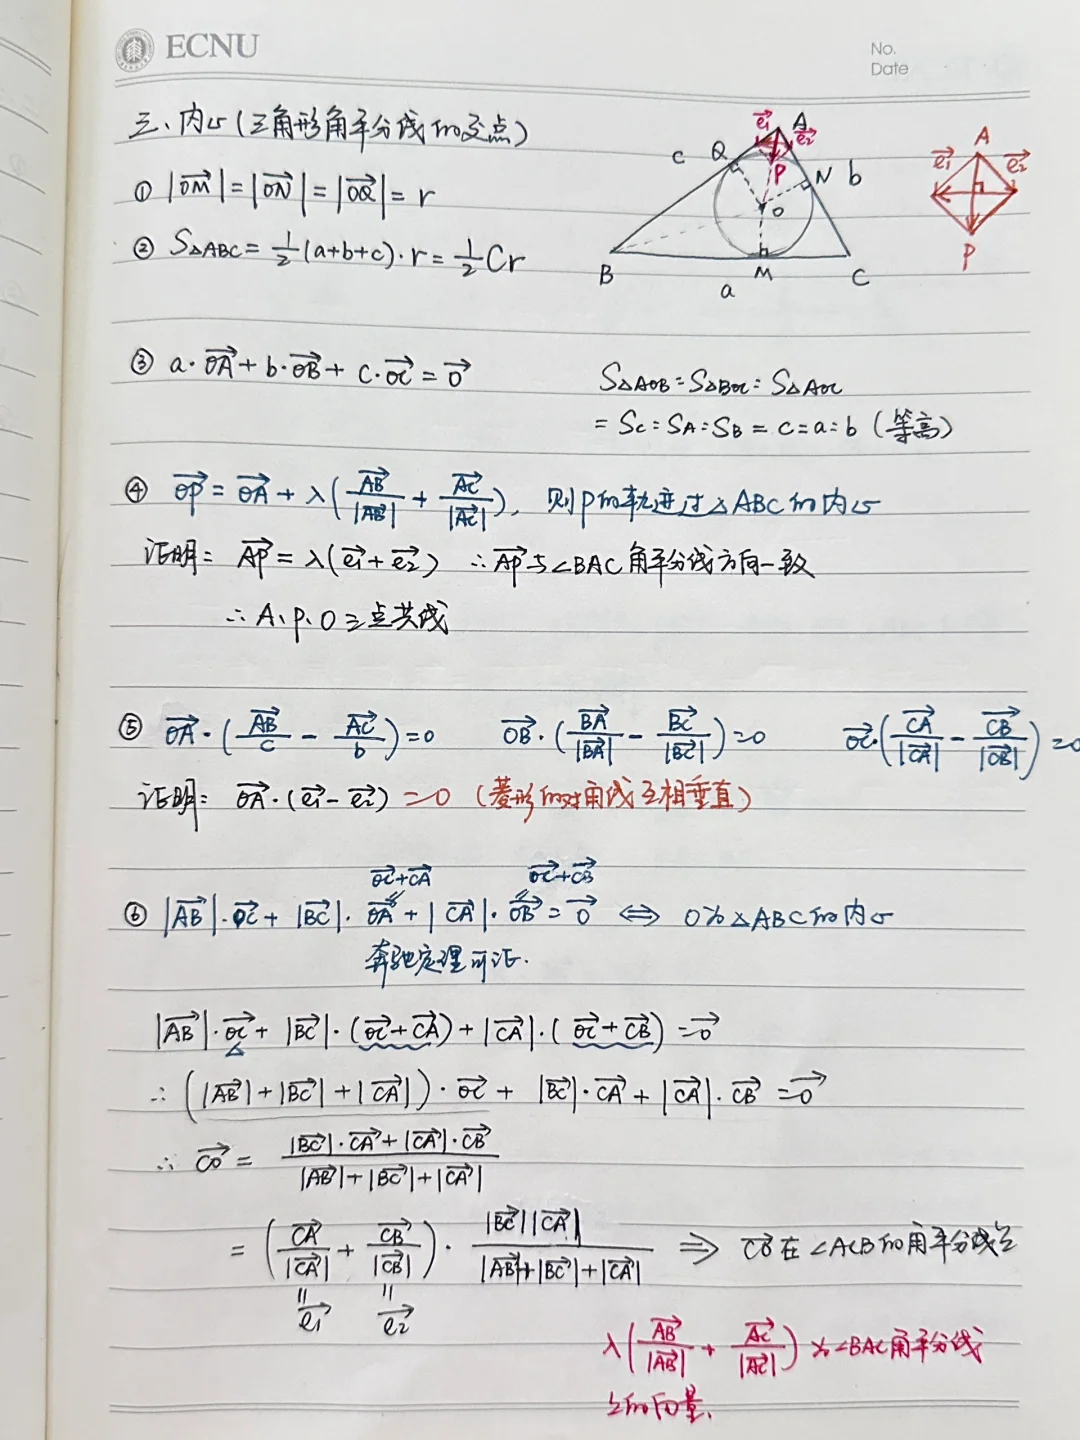 ECNU
No.
Date
三、内心(三角形角平分线的交点)
① |OM→|=|ON→|=|OQ→|=r
② S△ABC=1/2(a+b+c)·r=1/2Cr
A
e1→
e2→
c
Q
P
N
b
O
B
M
C
a
A
e1→
e2→
P
③ a·OA→+b·OB→+c·OC→=0→
S△AOB:S△BOC:S△AOC
=Sc:SA:SB=c:a:b(等高)
④ OP→=OA→+λ(AB→/|AB→|+AC→/|AC→|),则P的轨迹过△ABC的内心
证明: AP→=λ(e1→+e2→) ∴AP→与∠BAC角平分线方向一致
∴A、P、O三点共线
⑤ OA→·(AB→/c-AC→/b)=0 OB→·(BA→/|BA→|-BC→/|BC→|)=0 OC→·(CA→/|CA→|-CB→/|CB→|)=0
证明: OA→·(e1→-e2→)=0(菱形的对角线互相垂直)
OC→+CA→ OC→+CB→
⑥ |AB→|·OC→+|BC→|·OA→+|CA→|·OB→=0→ ⇔ O为△ABC的内心
奔驰定理可证.
|AB→|·OC→+|BC→|·(OC→+CA→)+|CA→|·(OC→+CB→)=0→
∴(|AB→|+|BC→|+|CA→|)·OC→+|BC→|·CA→+|CA→|·CB→=0→
∴CO→=(|BC→|·CA→+|CA→|·CB→)/(|AB→|+|BC→|+|CA→|)
=(CA→/|CA→|+CB→/|CB→|)·|BC→||CA→|/(|AB→|+|BC→|+|CA→|) ⇒ CO→在∠ACB的角平分线上
= e1→ = e2→
λ(AB→/|AB→|+AC→/|AC→|)为∠BAC角平分线
上的向量.